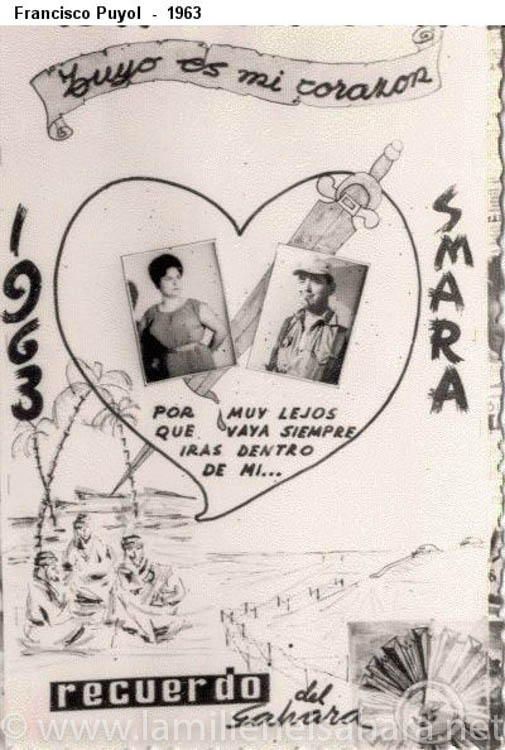 Francisco Puyol - 1963
tuyo es mi corazon
1963
SMARA
POR MUY LEJOS
QUE VAYA SIEMPRE
IRAS DENTRO
DE MI...
recuerdo
del
Sahara
© www.lamilienelsahara.net